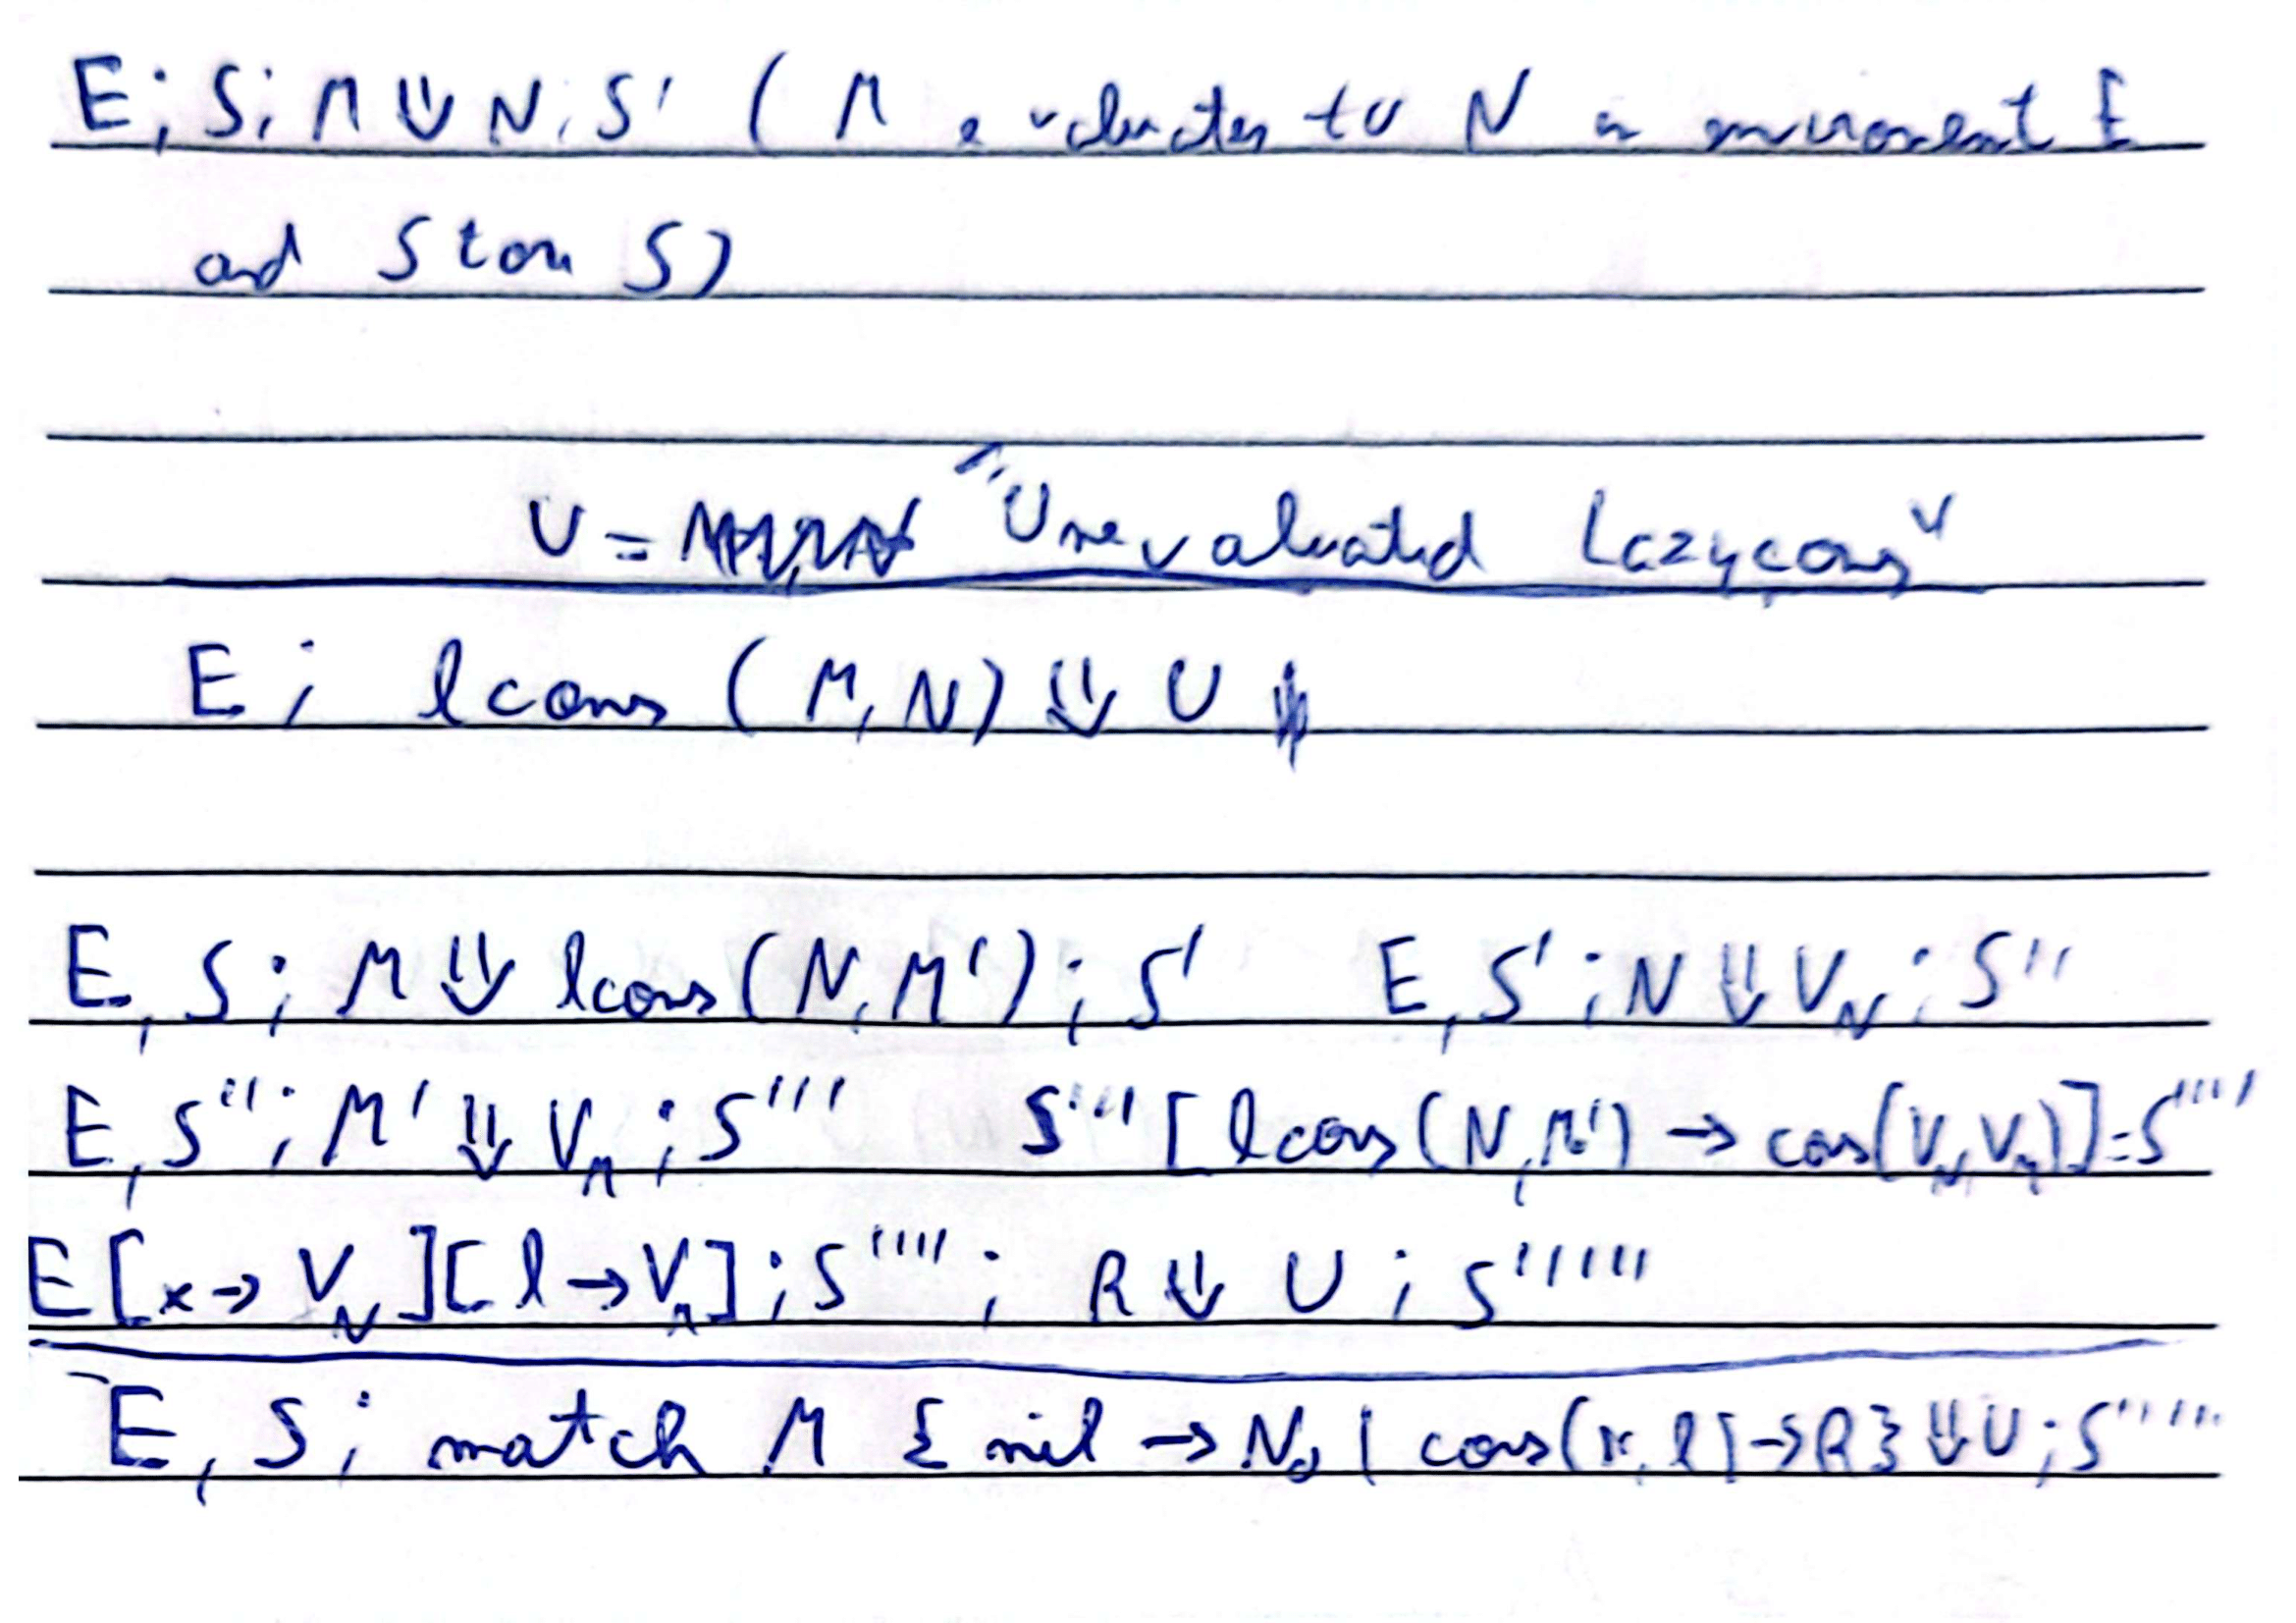 E; S; M ⇓ N; S' ( M evaluates to N in enviroment E
and Store S)
U = "Unevaluated Lazycons"
E ; lcons ( M, N) ⇓ U
E, S ; M ⇓ lcons (N, M') ; S'   E, S' ; N ⇓ V_N ; S''
E, S'' ; M' ⇓ V_M ; S'''   S''' [ lcons (N, M') → cons(V_N, V_M)] = S''''
E [x → V_N ] [ l → V_M ] ; S'''' ; R ⇓ U ; S'''''
E, S ; match M { nil → N₀ | cons(x, l) → R } ⇓ U ; S'''''